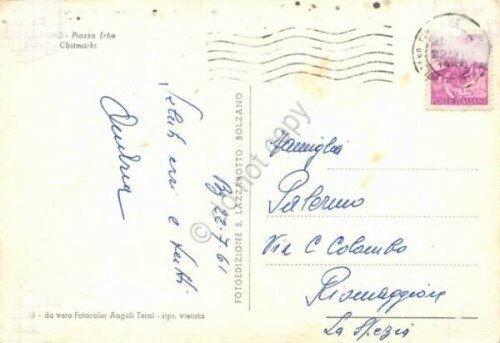 NO - Piazza Erbe
Obstmarkt
Saluti cari a tutti
Andrea
Bz 22-7 61
FOTOEDIZIONE B. LAZZAROTTO - BOLZANO
do not copy
POSTE ITALIANE
Famiglia
Palermo
Via C Colombo
Riomaggiore
La Spezia
- da vero Fotocolor Angeli Terni - ripr. vietata